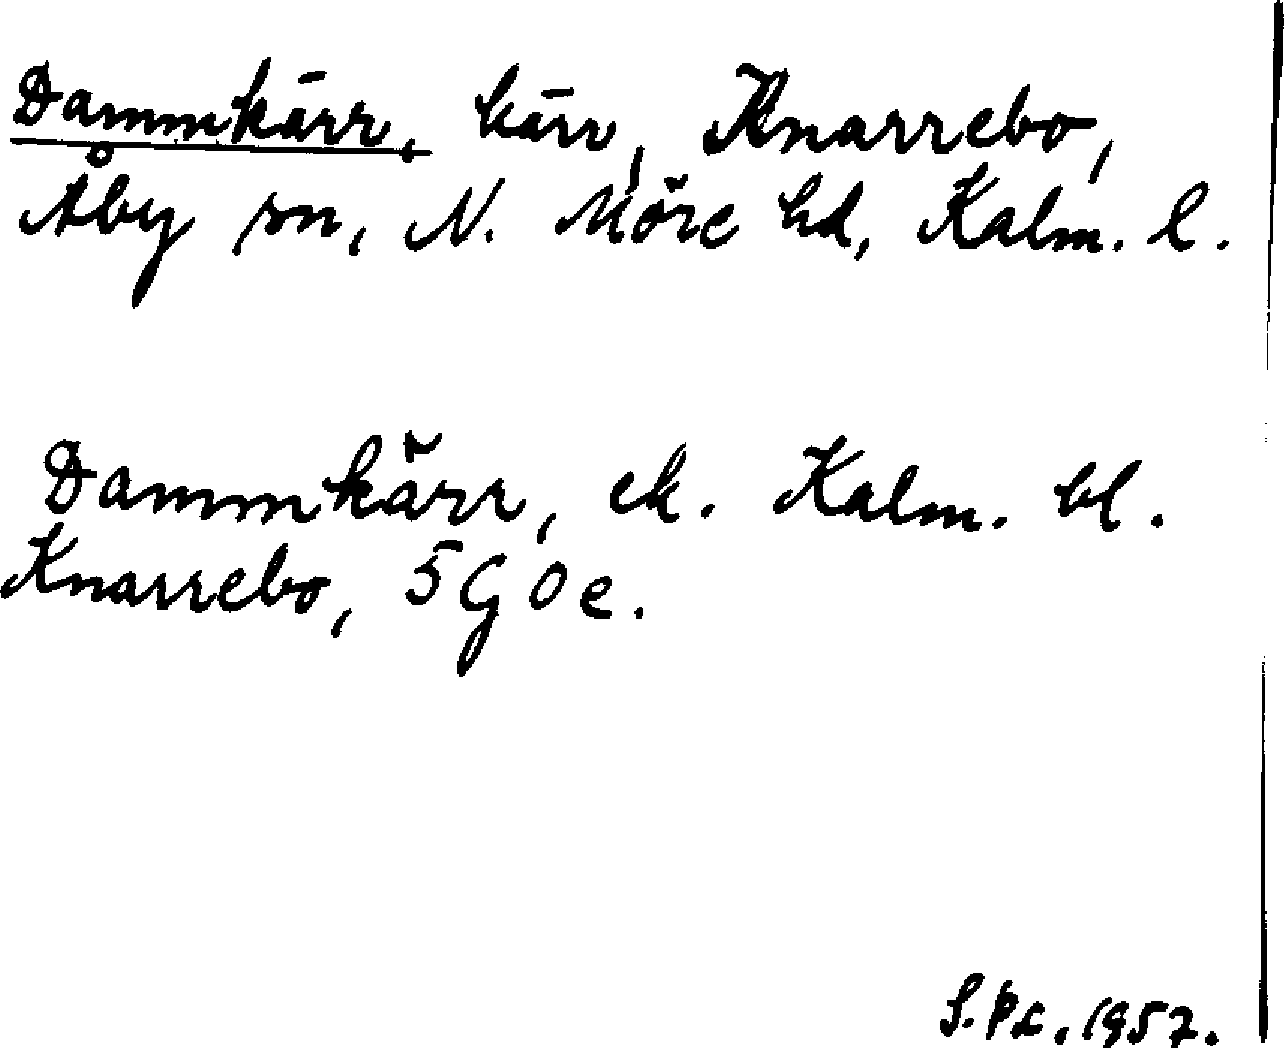 Dammkärr, kärr, Knarrebo,
Åby sn, N. Möre hd, Kalm. l.
Dammkärr, ek. Kalm. bl.
Knarrebo, 5 G 0 e.
1957.